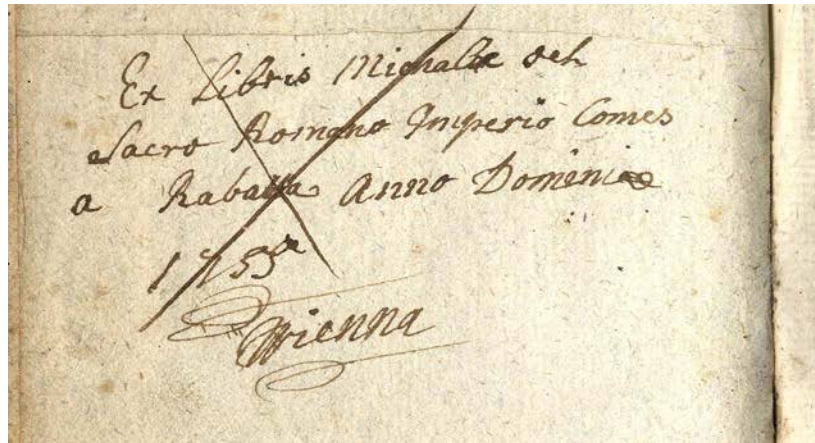 Ex Libris Michale del
Sacro Romano Imperio Comes
a Rabatta Anno Domini
1755
Wienna